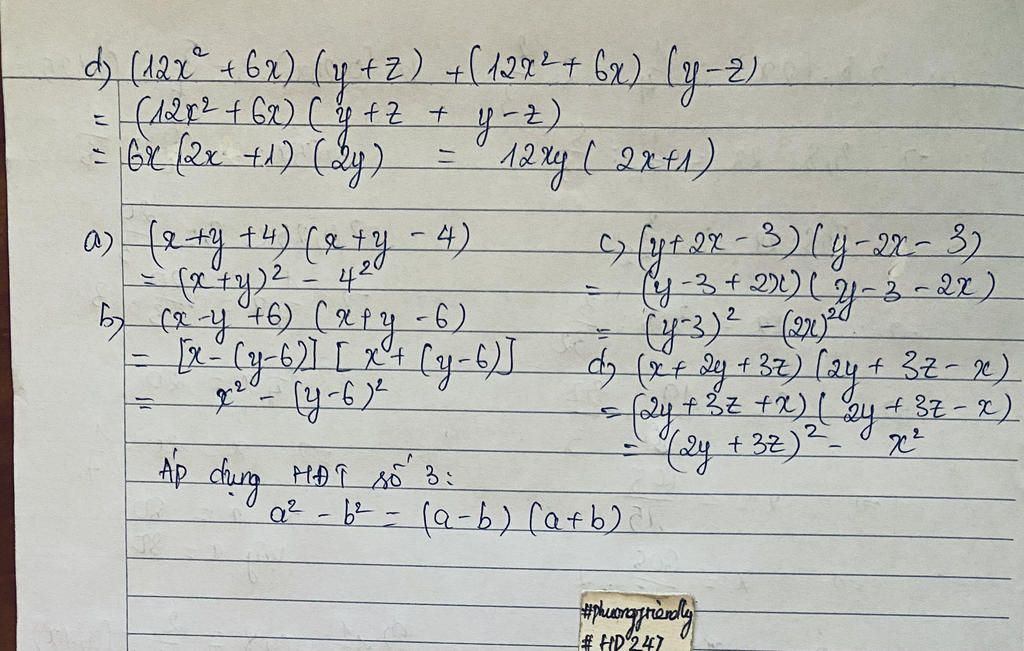 d) (12x² + 6x) (y + z) + (12x² + 6x) (y - z)
= (12x² + 6x) ( y + z + y - z)
= 6x (2x + 1) (2y) = 12xy ( 2x+1)
a) (x + y + 4) (x + y - 4)
= (x + y)² - 4²
b) (x - y + 6) (x + y - 6)
= [x - (y - 6)] [ x + (y - 6)]
= x² - (y - 6)²
c) (y + 2x - 3) ( y - 2x - 3)
= (y - 3 + 2x) ( y - 3 - 2x)
= (y - 3)² - (2x)²
d) (x + 2y + 3z) (2y + 3z - x)
= (2y + 3z + x) ( 2y + 3z - x)
= (2y + 3z)² - x²
Áp dụng HĐT số 3:
a² - b² = (a - b) (a + b)
#phuongfriendly
# HD247